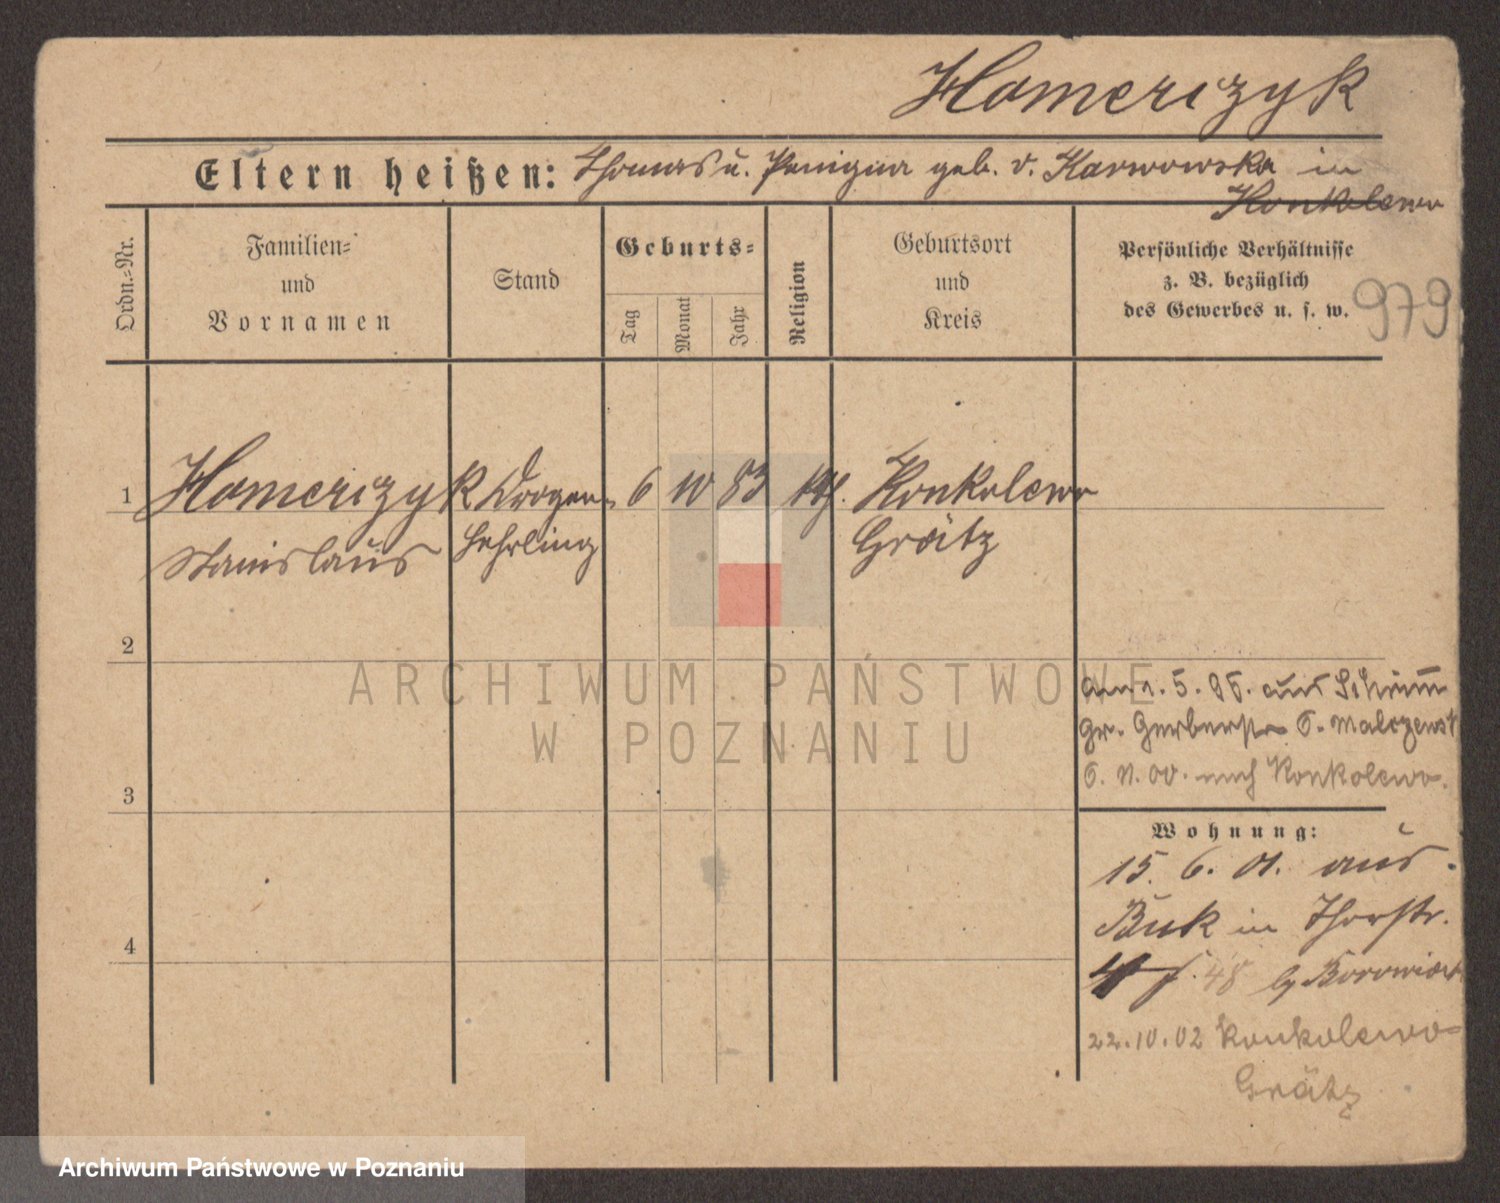 Hamerczyk
Eltern heißen: Thomas u. Benigna geb. v. Karwowska in
Konkolewo
Ordn.=Nr.
Familien=
und
Vornamen
Stand
Geburts=
Tag
Monat
Jahr
Religion
Geburtsort
und
Kreis
Persönliche Verhältnisse
z. B. bezüglich
des Gewerbes u. s. w.
979
1 Hamerczyk Drogen- 6 10 83 kth. Konkolewo
Stanislaus Lehrling Grätz
2
3
4
am 1. 5. 96. aus Schrimm
Gr. Gerberstr 6. Malczewsk
6. 11. 00. nach Konkolewo.
Wohnung:
15. 6. 01. aus
Buk in Thorstr.
48 b/ Borowiak
22.10.02 Konkolewo-
Grätz
ARCHIWUM PAŃSTWOWE
W POZNANIU
Archiwum Państwowe w Poznaniu